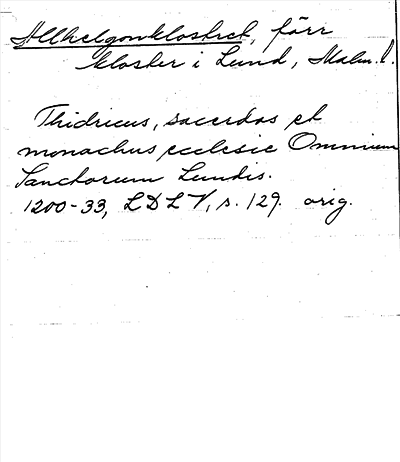 Allhelgonklostret, förr
kloster i Lund, Malm. l.
Thidricus, sacerdos et
monachus ecclesie Omnium
Sanctorum Lundis.
1200-33, LDLV, s. 129. orig.